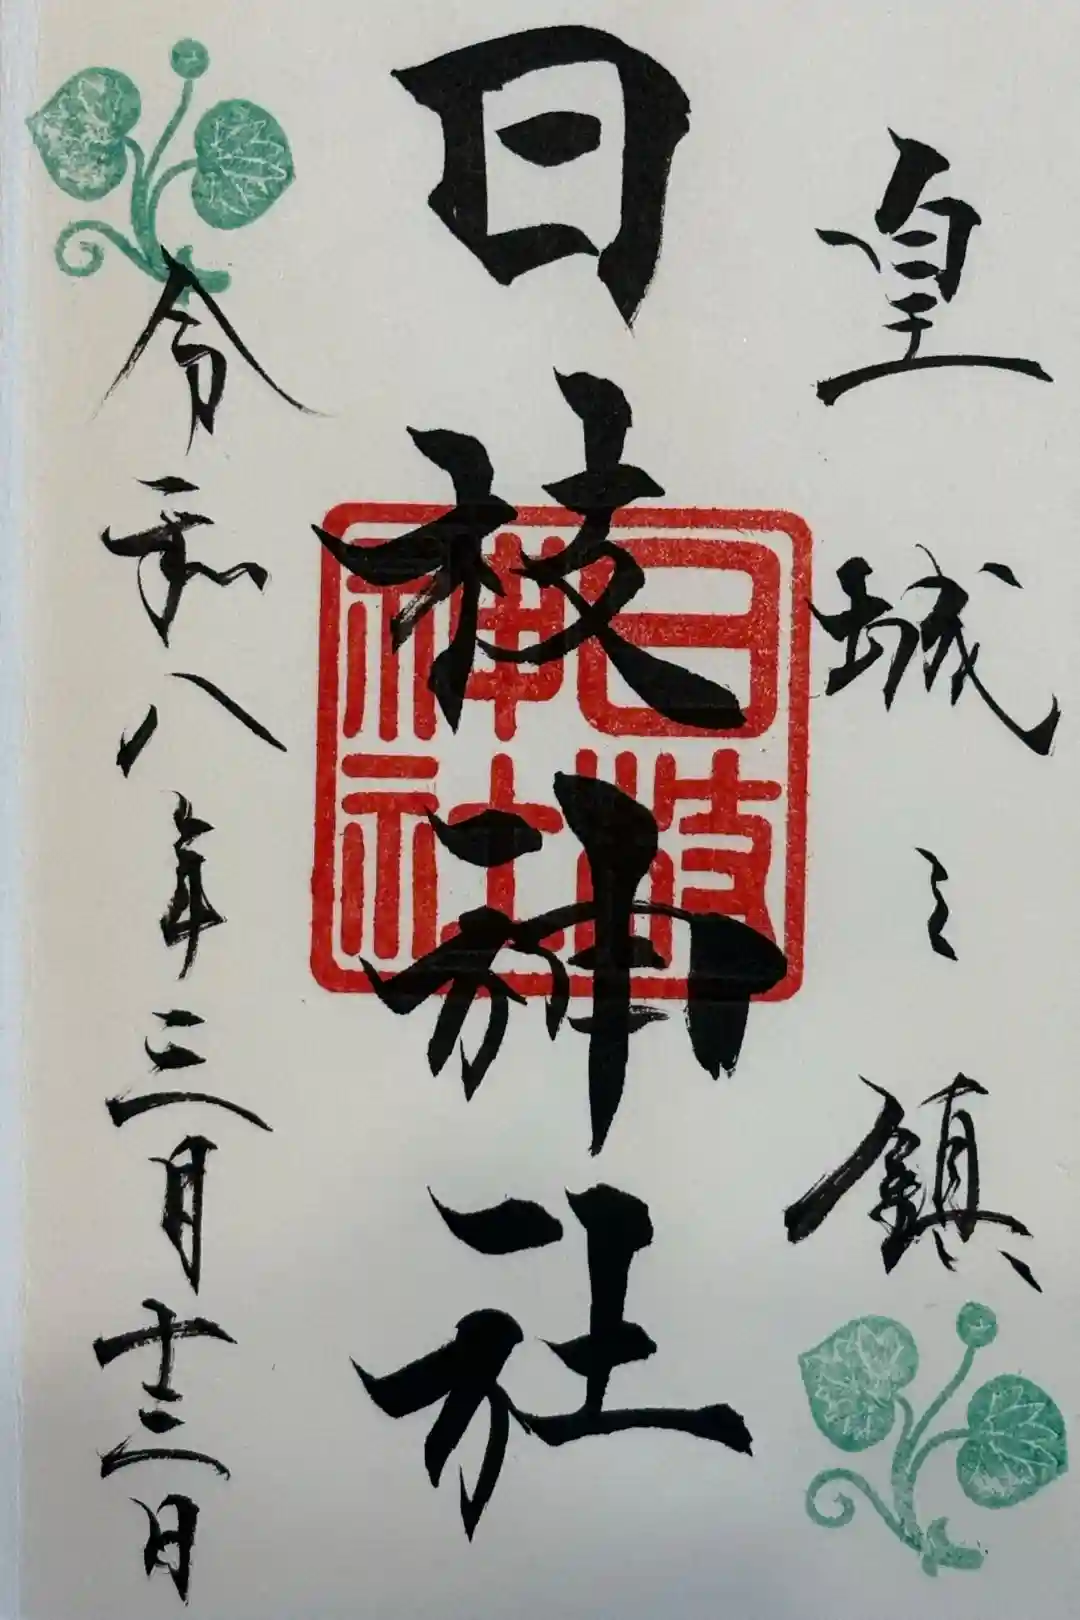 皇城之鎮
日枝神社
日枝神社
令和八年三月十二日